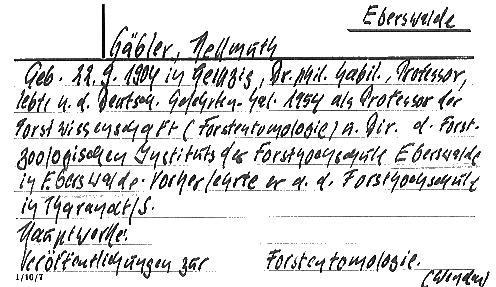 Eberswalde
Gäbler, Hellmuth
Geb. 22.9.1904 in Leipzig, Dr. phil. habil., Professor,
lebte n. d. Deutsch. Gelehrten-Kal. 1954 als Professor der
Forstwissenschaft (Forstentomologie) u. Dir. d. Forst-
zoologischen Instituts der Forsthochschule Eberswalde
in Eberswalde. Vorher lehrte er a. d. Forsthochschule
in Tharandt/S.
Hauptwerke:
Veröffentlichungen zur Forstentomologie.
1/10/7